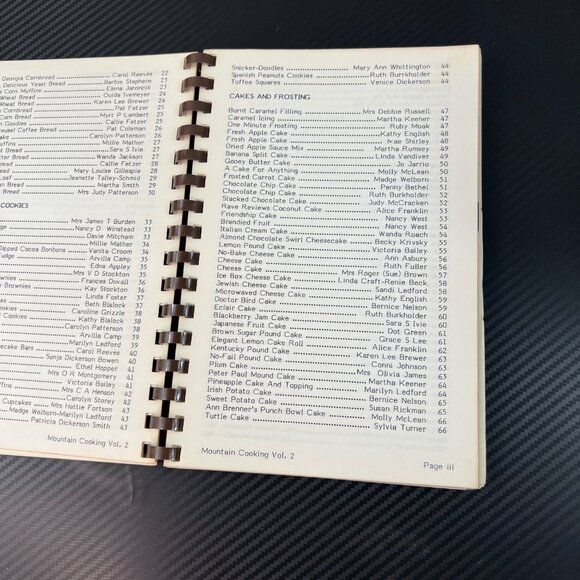 Georgia Cornbread Carol Reeves 22
Delicious Yeast Bread Barbie Stephens 23
Corn Muffins Elona Jaroncik 23
Wheat Bread Ouida Ivemeyer 24
Wheat Bread Karen Lee Brewer 24
Cornbread Pat Fetzer 25
Bread Myrt P Lambert 25
Goodies Callie Fetzer 25
Streusel Coffee Bread Pat Coleman 26
Cake Carolyn Patterson 26
Muffins Millie Mather 26
Bread Sara S Ivie 27
Butter Bread Wanda Jackson 27
Bread Callie Fetzer 28
Bread Mary Louise Gillespie 28
Loaf Jeanette Talley-Schmid 29
Bread Martha Smith 29
Bread Mrs Judy Patterson 30
COOKIES
Mrs James T Burden 33
Nancy D Winstead 33
Davie Mitcham 33
Millie Mather 34
Dipped Cocoa Bonbons Vanita Croom 34
Fudge Arvilla Camp 35
Edna Appley 35
Mrs V D Stockton 35
Brownies Frances Duvall 36
Kay Stockton 36
Linda Foster 37
Beth Blalock 37
Cookies Caroline Grizzle 38
Cookies Kathy Blalock 38
Carolyn Patterson 38
Arvilla Camp 39
Marilyn Ledford 39
Cheesecake Bars Carol Reeves 40
Sonja Dickerson Bowen 40
Ethel Hopper 41
Mrs O R Montgomery 41
Victoria Bailey 41
Mrs C A Henson 42
Carolyn Storey 42
Cupcakes Mrs Hattie Fortson 43
Madge Welborn-Marilyn Ledford 43
Patricia Dickerson Smith 43
Mountain Cooking Vol. 2
Snicker-Doodles Mary Ann Whittington 44
Spanish Peanuts Cookies Ruth Burkholder 44
Toffee Squares Venice Dickerson 44
CAKES AND FROSTING
Burnt Caramel Filling Mrs Debbie Russell 47
Caramel Icing Martha Keener 47
One Minute Frosting Ruby Moak 47
Fresh Apple Cake Kathy English 47
Fresh Apple Cake Ivae Shirley 48
Dried Apple Sauce Mix Martha Rumsey 49
Banana Split Cake Linda Vandiver 49
Gooey Butter Cake Jo Jarrio 50
A Cake For Anything Molly McLean 50
Frosted Carrot Cake Madge Welborn 51
Chocolate Chip Cake Penny Bethel 51
Chocolate Chip Cake Ruth Burkholder 52
Stacked Chocolate Cake Judy McCracken 52
Rave Reviews Coconut Cake Alice Franklin 53
Friendship Cake Nancy West 53
Brandied Fruit Nancy West 54
Italian Cream Cake Wanda Roach 54
Almond Chocolate Swirl Cheesecake Becky Krivsky 55
Lemon Pound Cake Victoria Bailey 55
No-Bake Cheese Cake Ann Asbury 56
Cheese Cake Ruth Fuller 56
Cheese Cake Mrs Roger (Sue) Brown 57
Ice Box Cheese Cake Linda Craft-Renie Beck 58
Jewish Cheese Cake Sandi Ledford 58
Microwaved Cheese Cake Kathy English 59
Doctor Bird Cake Bernice Nelson 59
Eclair Cake Ruth Burkholder 60
Blackberry Jam Cake Sara S Ivie 60
Japanese Fruit Cake Dot Green 61
Brown Sugar Pound Cake Grace S Lee 61
Elegant Lemon Cake Roll Alice Franklin 62
Kentucky Pound Cake Karen Lee Brewer 63
No-Fail Pound Cake Conni Johnson 63
Plum Cake Mrs Olivia James 63
Peter Paul Mound Cake Martha Keener 64
Pineapple Cake And Topping Marilyn Ledford 64
Irish Potato Cake Bernice Nelson 65
Sweet Potato Cake Susan Rickman 65
Ann Brenner's Punch Bowl Cake Molly McLean 66
Turtle Cake Sylvia Turner 66
Mountain Cooking Vol. 2
Page iii